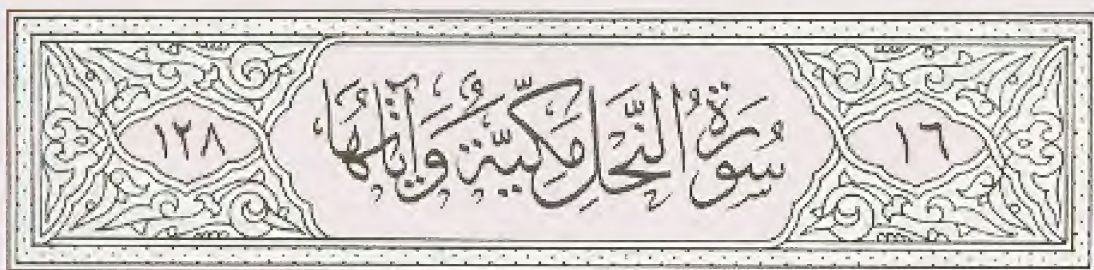 ١٦ سُورَةُ النَّحْلِ مَكِّيَّةٌ وَآيَاتُهَا ١٢٨